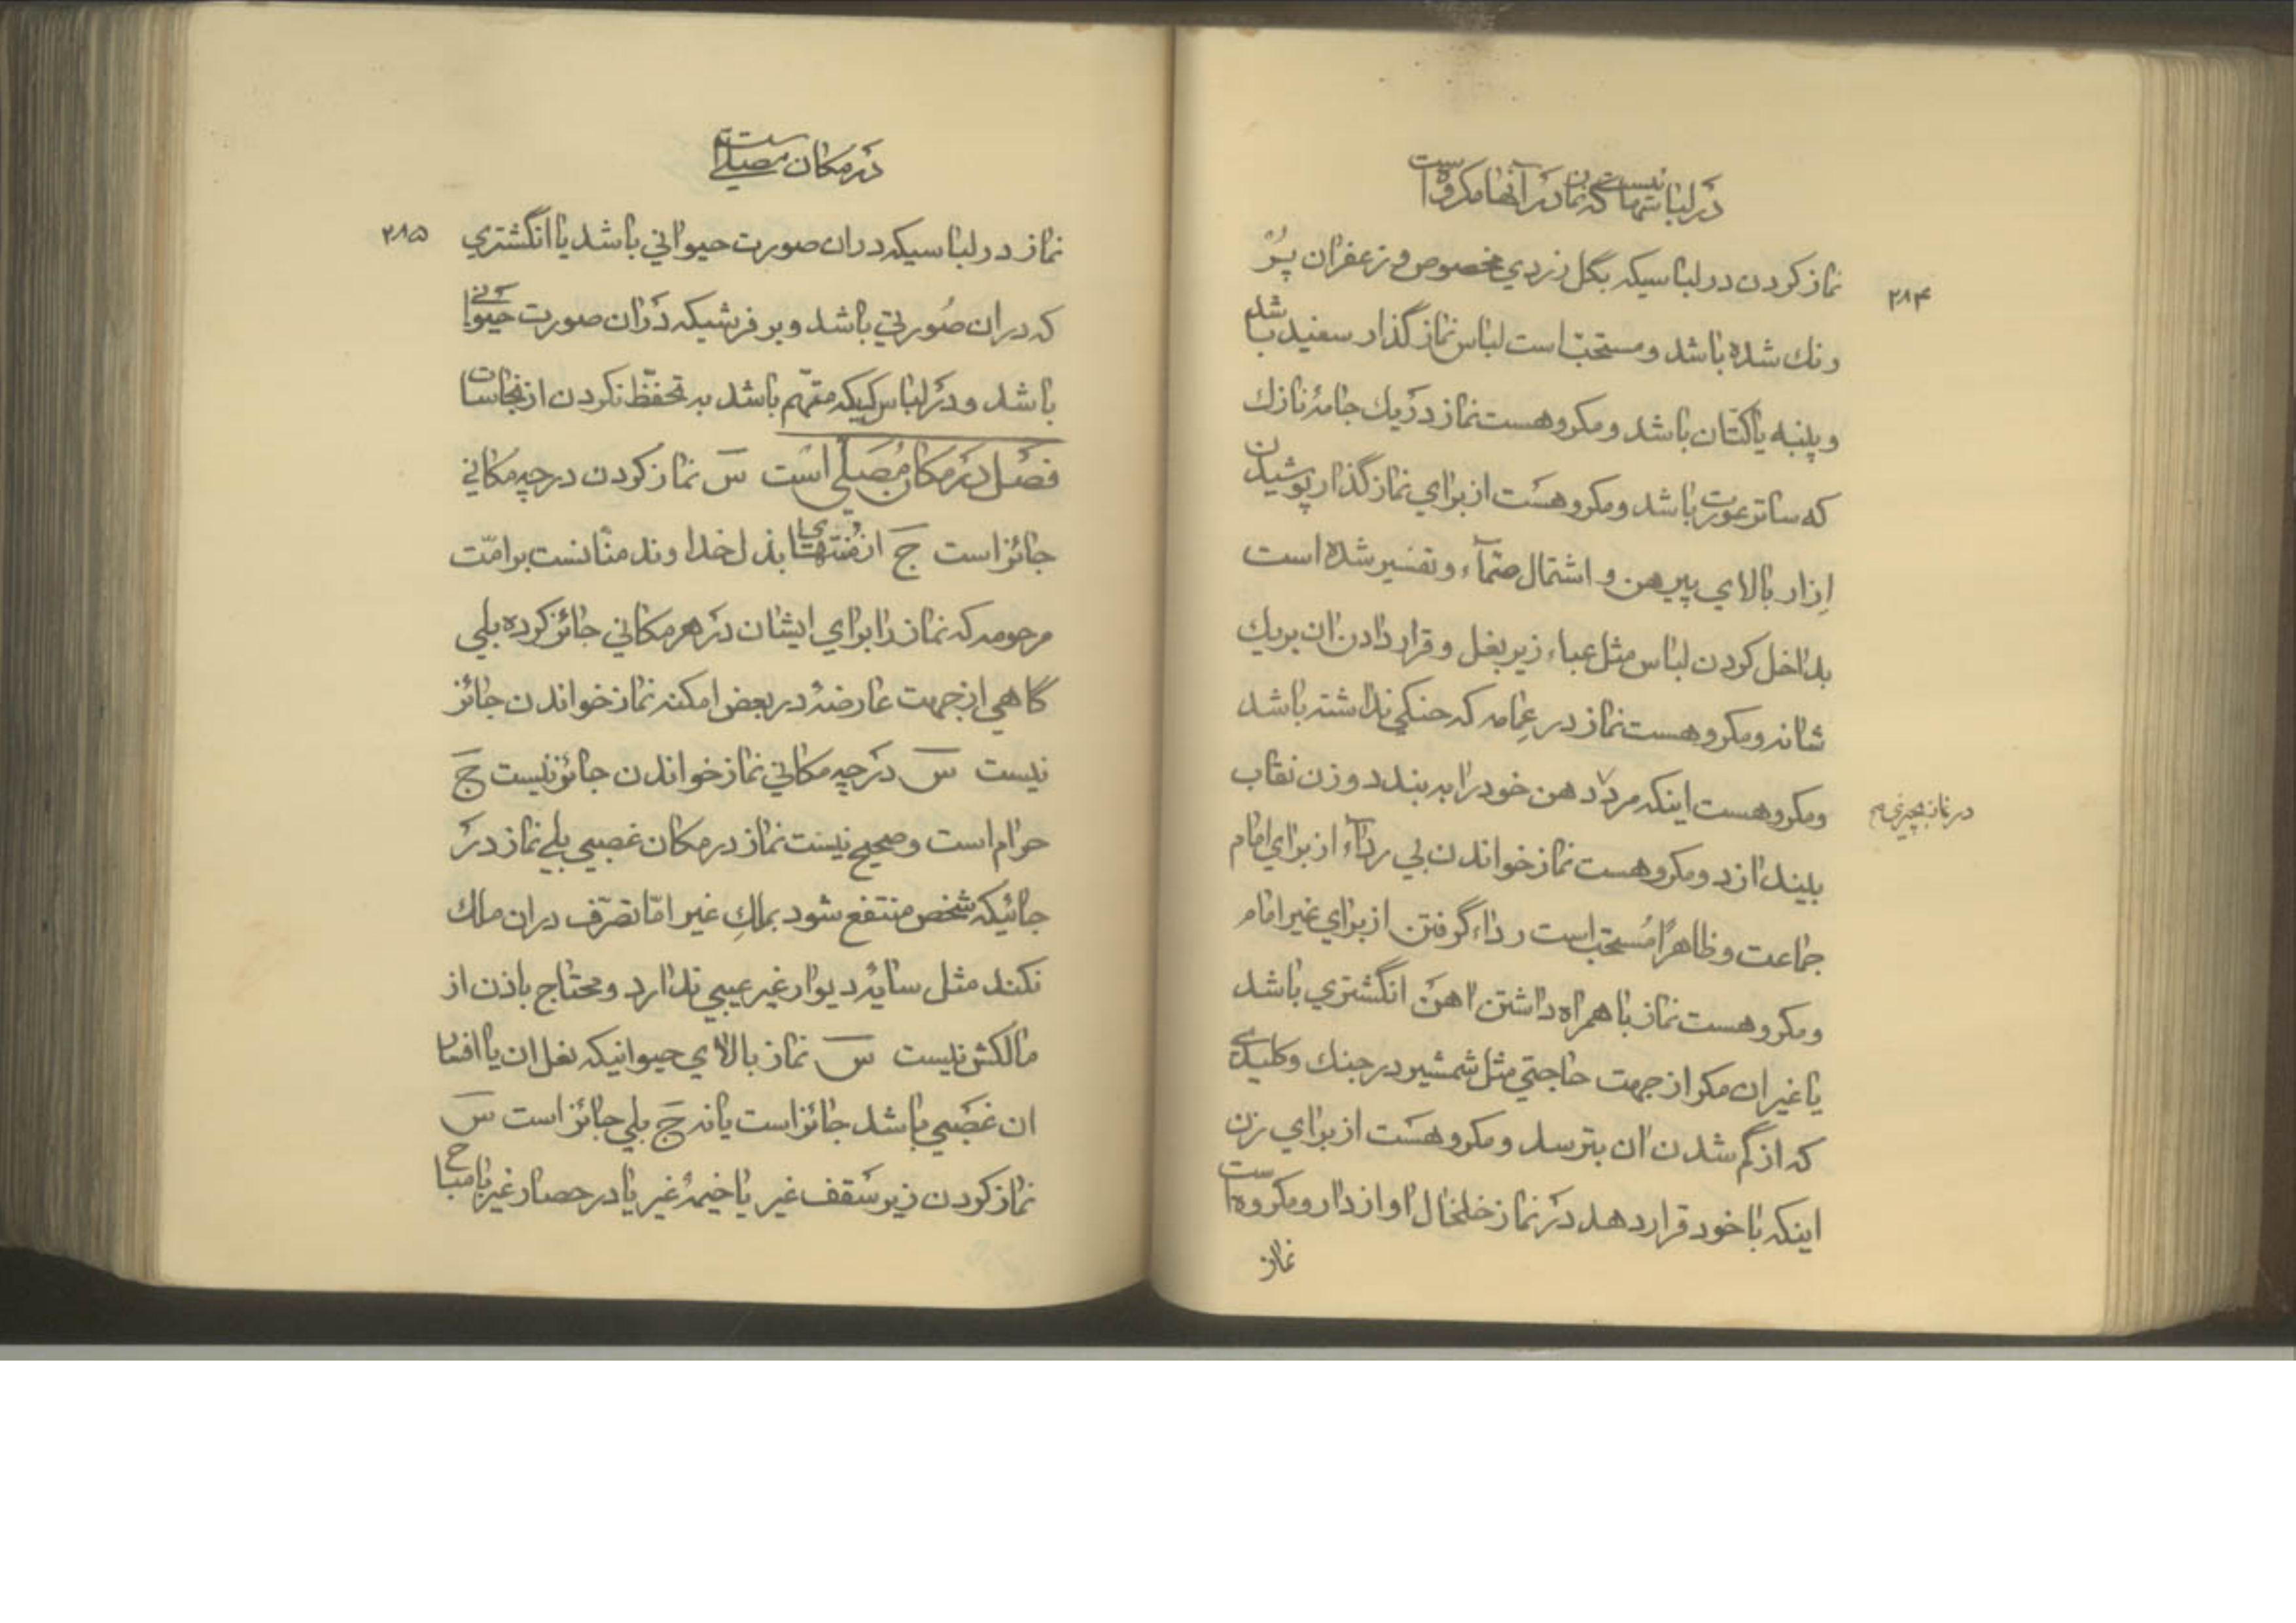 در لباسهائیست که نماز در آنها مکروه است
۲۸۴
نماز کردن در لباسیکه بگل زردي مخصوص و زعفران پُر
رنك شده باشد و مستحبّ است لباس نماز گذار سفید باشد
و پنبه یا کتّان باشد و مکروهست نماز در یك جامهٔ نازك
که ساتر عورت باشد و مکروهست از براي نماز گذار پوشیدن
اِزار بالاي پیرهن و اشتمال صمّآء و تفسیر شده است
بداخل کردن لباس مثل عباء زیر بغل و قرار دادن ان بر یك
شانه و مکروهست نماز در عِمامه که حنکي نداشته باشد
و مکروهست اینکه مرد دهن خود را به بندد و زن نقاب
در نماز بچیزی
بیندازد و مکروهست نماز خواندن بي ردآء از براي امام
جماعت و ظاهرًا مُستحبّ است رداء گرفتن از براي غیر امام
و مکروهست نماز با همراه داشتن اهن انگشتري باشد
یا غیر ان مکر از جهت حاجتي مثل شمشیر در جنك و کلیدے
که از گم شدن ان بترسد و مکروهست از براي زن
اینکه با خود قرار دهد در نماز خلخال اواز دار و مکروه است
نماز
در مکان مصلّے است
۲۸۵
نماز در لباسیکه در ان صورت حیواني باشد یا انگشتري
که در ان صُورتي باشد و بر فرشیکه در ان صورت حیوانے
باشد و در لباس کسیکه متّهم باشد به تحفّظ نکردن از نجاسات
فصل در مکان مُصَلّي است سَ نماز کردن در چه مکاني
جائز است جَ از مُنتهای بذل خداوند منّانست بر امّت
مرحومه که نماز را براي ایشان در هر مکاني جائز کرده بلي
گاهي از جهت عارضهٔ در بعض امکنه نماز خواندن جائز
نیست سَ در چه مکاني نماز خواندن جائز نیست جَ
حرام است و صحیح نیست نماز در مکان غصبي بلے نماز در
جائیکه شخص منتفع شود بملكِ غیر امّا تصرّف در ان ملك
نکند مثل سایهٔ دیوار غیر عیبي ندارد و محتاج باذن از
مالکش نیست سَ نماز بالاي حیوانیکه نعل ان یا افسار
ان غصَبي باشد جائز است یا نه جَ بلي جائز است سَ
نماز کردن زیر سَقف غیر یا خیمهٔ غیر یا در حصار غیر با مباح